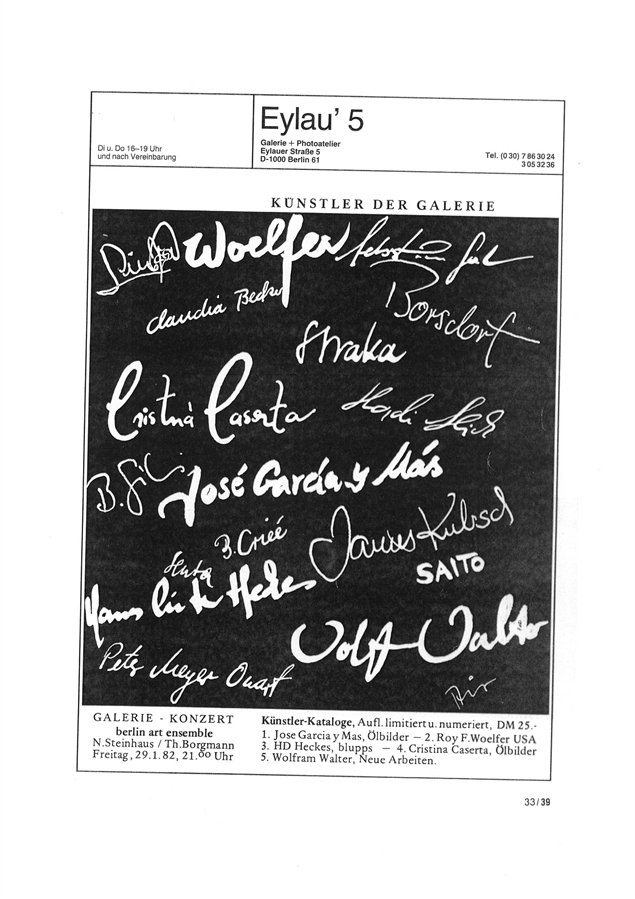 Eylau' 5
Di u. Do 16–19 Uhr
und nach Vereinbarung
Galerie + Photoatelier
Eylauer Straße 5
D-1000 Berlin 61
Tel. (030) 7 86 30 24
3 05 32 36
KÜNSTLER DER GALERIE
Woelfer
Claudia Becker
Borsdorf
Straka
Cristina Caserta
Heidi
B.
José García y Más
B. Crieé
Kubisch
SAITO
Hans Heckes
Wolf Walter
Peter Meyer Quart
GALERIE - KONZERT
berlin art ensemble
N.Steinhaus / Th.Borgmann
Freitag, 29.1.82, 21.00 Uhr
Künstler-Kataloge, Aufl. limitiert u. numeriert, DM 25.-
1. Jose Garcia y Mas, Ölbilder – 2. Roy F.Woelfer USA
3. HD Heckes, blupps – 4. Cristina Caserta, Ölbilder
5. Wolfram Walter, Neue Arbeiten.
33/39